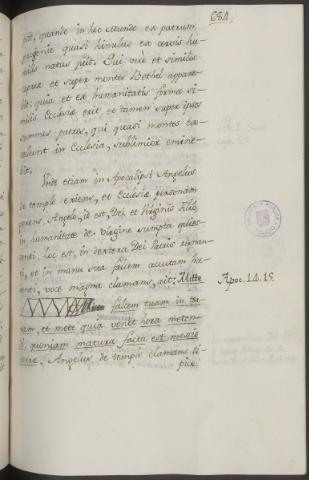 684.
est, quando in hoc mundo ex patrum
progenie quasi hinulus ex cervis hu-
milis natus fuit. Qui verè et similis
caprae et super montes Bethel appare-
bit: quia et ex humanitatis forma si-
milis Ecclesiae erit, et tamen super ipsos
summos patres, qui quasi montes ex-
celsi sunt in Ecclesia, sublimior emine-
bit.
Unde etiam in Apocalipsi Angelus
de templo exiens, et Ecclesiae personam
gerens, Angelo, id est, Dei et Virginis Filio
in humanitate de Virgine sumpta quies-
centi, hoc est, in dextera Dei Patris regnan-
ti, et in manu sua falcem acutam ha-
benti, voce magna clamans, ait; Mitte
falcem tuam in ter-
ram, et mete quia venit hora meten-
di, quoniam matura facta est messis
terrae. Angelus de templo clamans ti-
pice
Apoc. 14. 15.